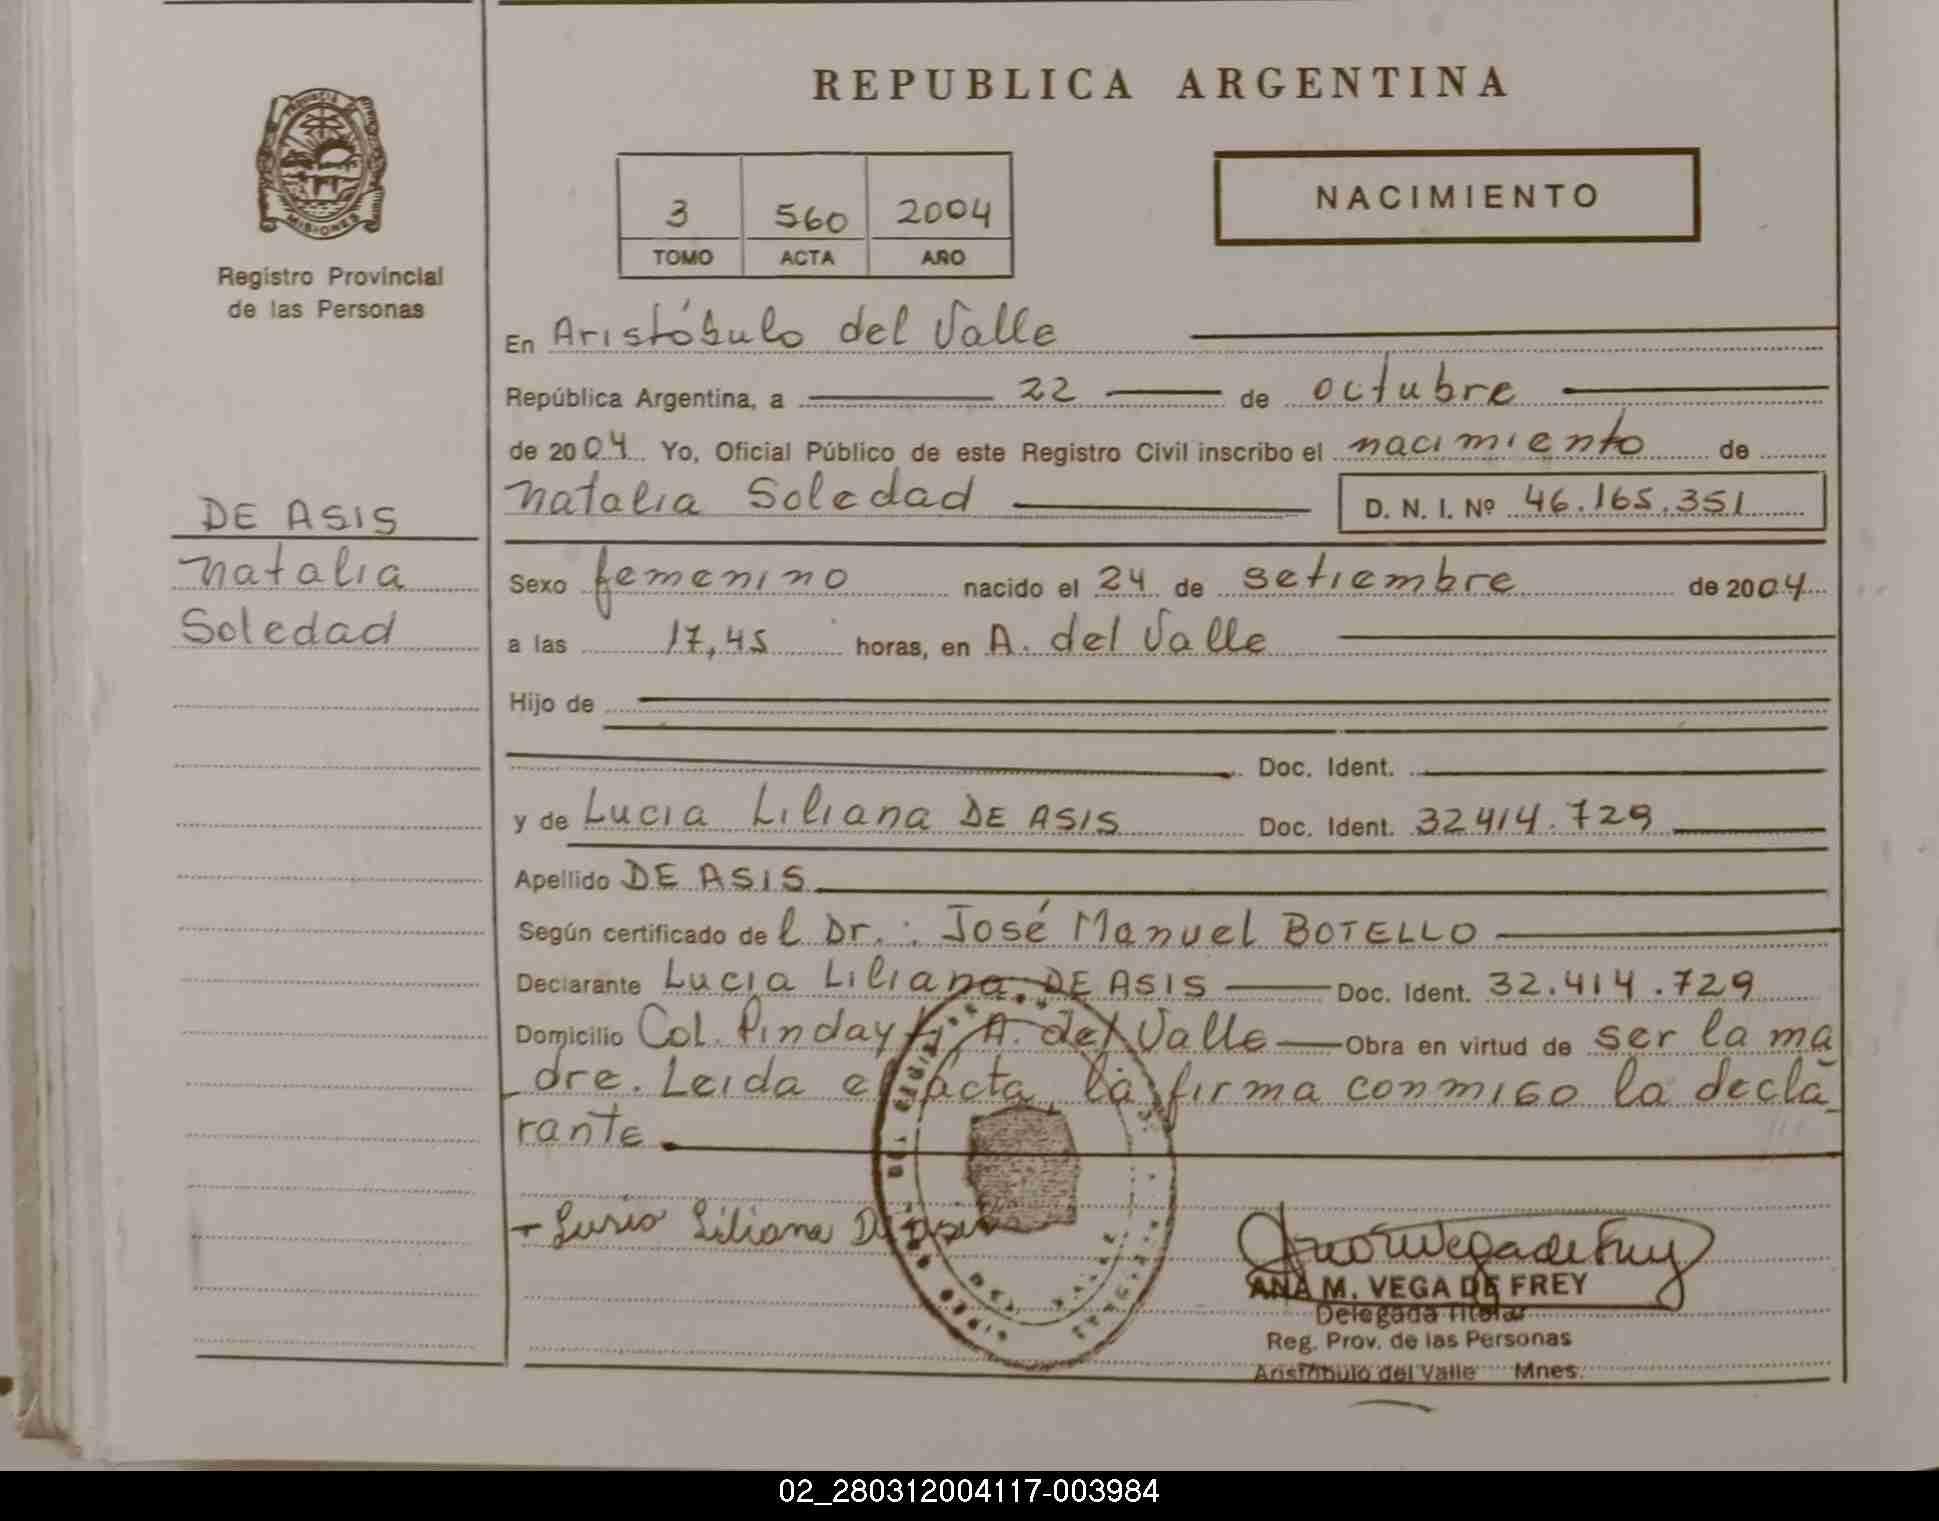 REPUBLICA ARGENTINA
PROVINCIA DE
MISIONES
Registro Provincial
de las Personas
3 560 2004
TOMO ACTA AÑO
NACIMIENTO
En Aristóbulo del Valle
República Argentina, a 22 de octubre
de 2004 Yo, Oficial Público de este Registro Civil inscribo el nacimiento de
Natalia Soledad D. N. I. Nº 46.165.351
DE ASIS
Natalia
Soledad
Sexo femenino nacido el 24 de setiembre de 2004
a las 17,45 horas, en A. del Valle
Hijo de
Doc. Ident.
y de Lucia Liliana DE ASIS Doc. Ident. 32.414.729
Apellido DE ASIS
Según certificado de l Dr.: José Manuel BOTELLO
Declarante Lucia Liliana DE ASIS Doc. Ident. 32.414.729
Domicilio Col. Pindayty A. del Valle Obra en virtud de ser la ma
dre. Leida el acta, la firma conmigo la decla
rante
Lucia Liliana De Asis
ANA M. VEGA DE FREY
Delegada Titular
Reg. Prov. de las Personas
Aristóbulo del Valle Mnes.
02_280312004117-003984